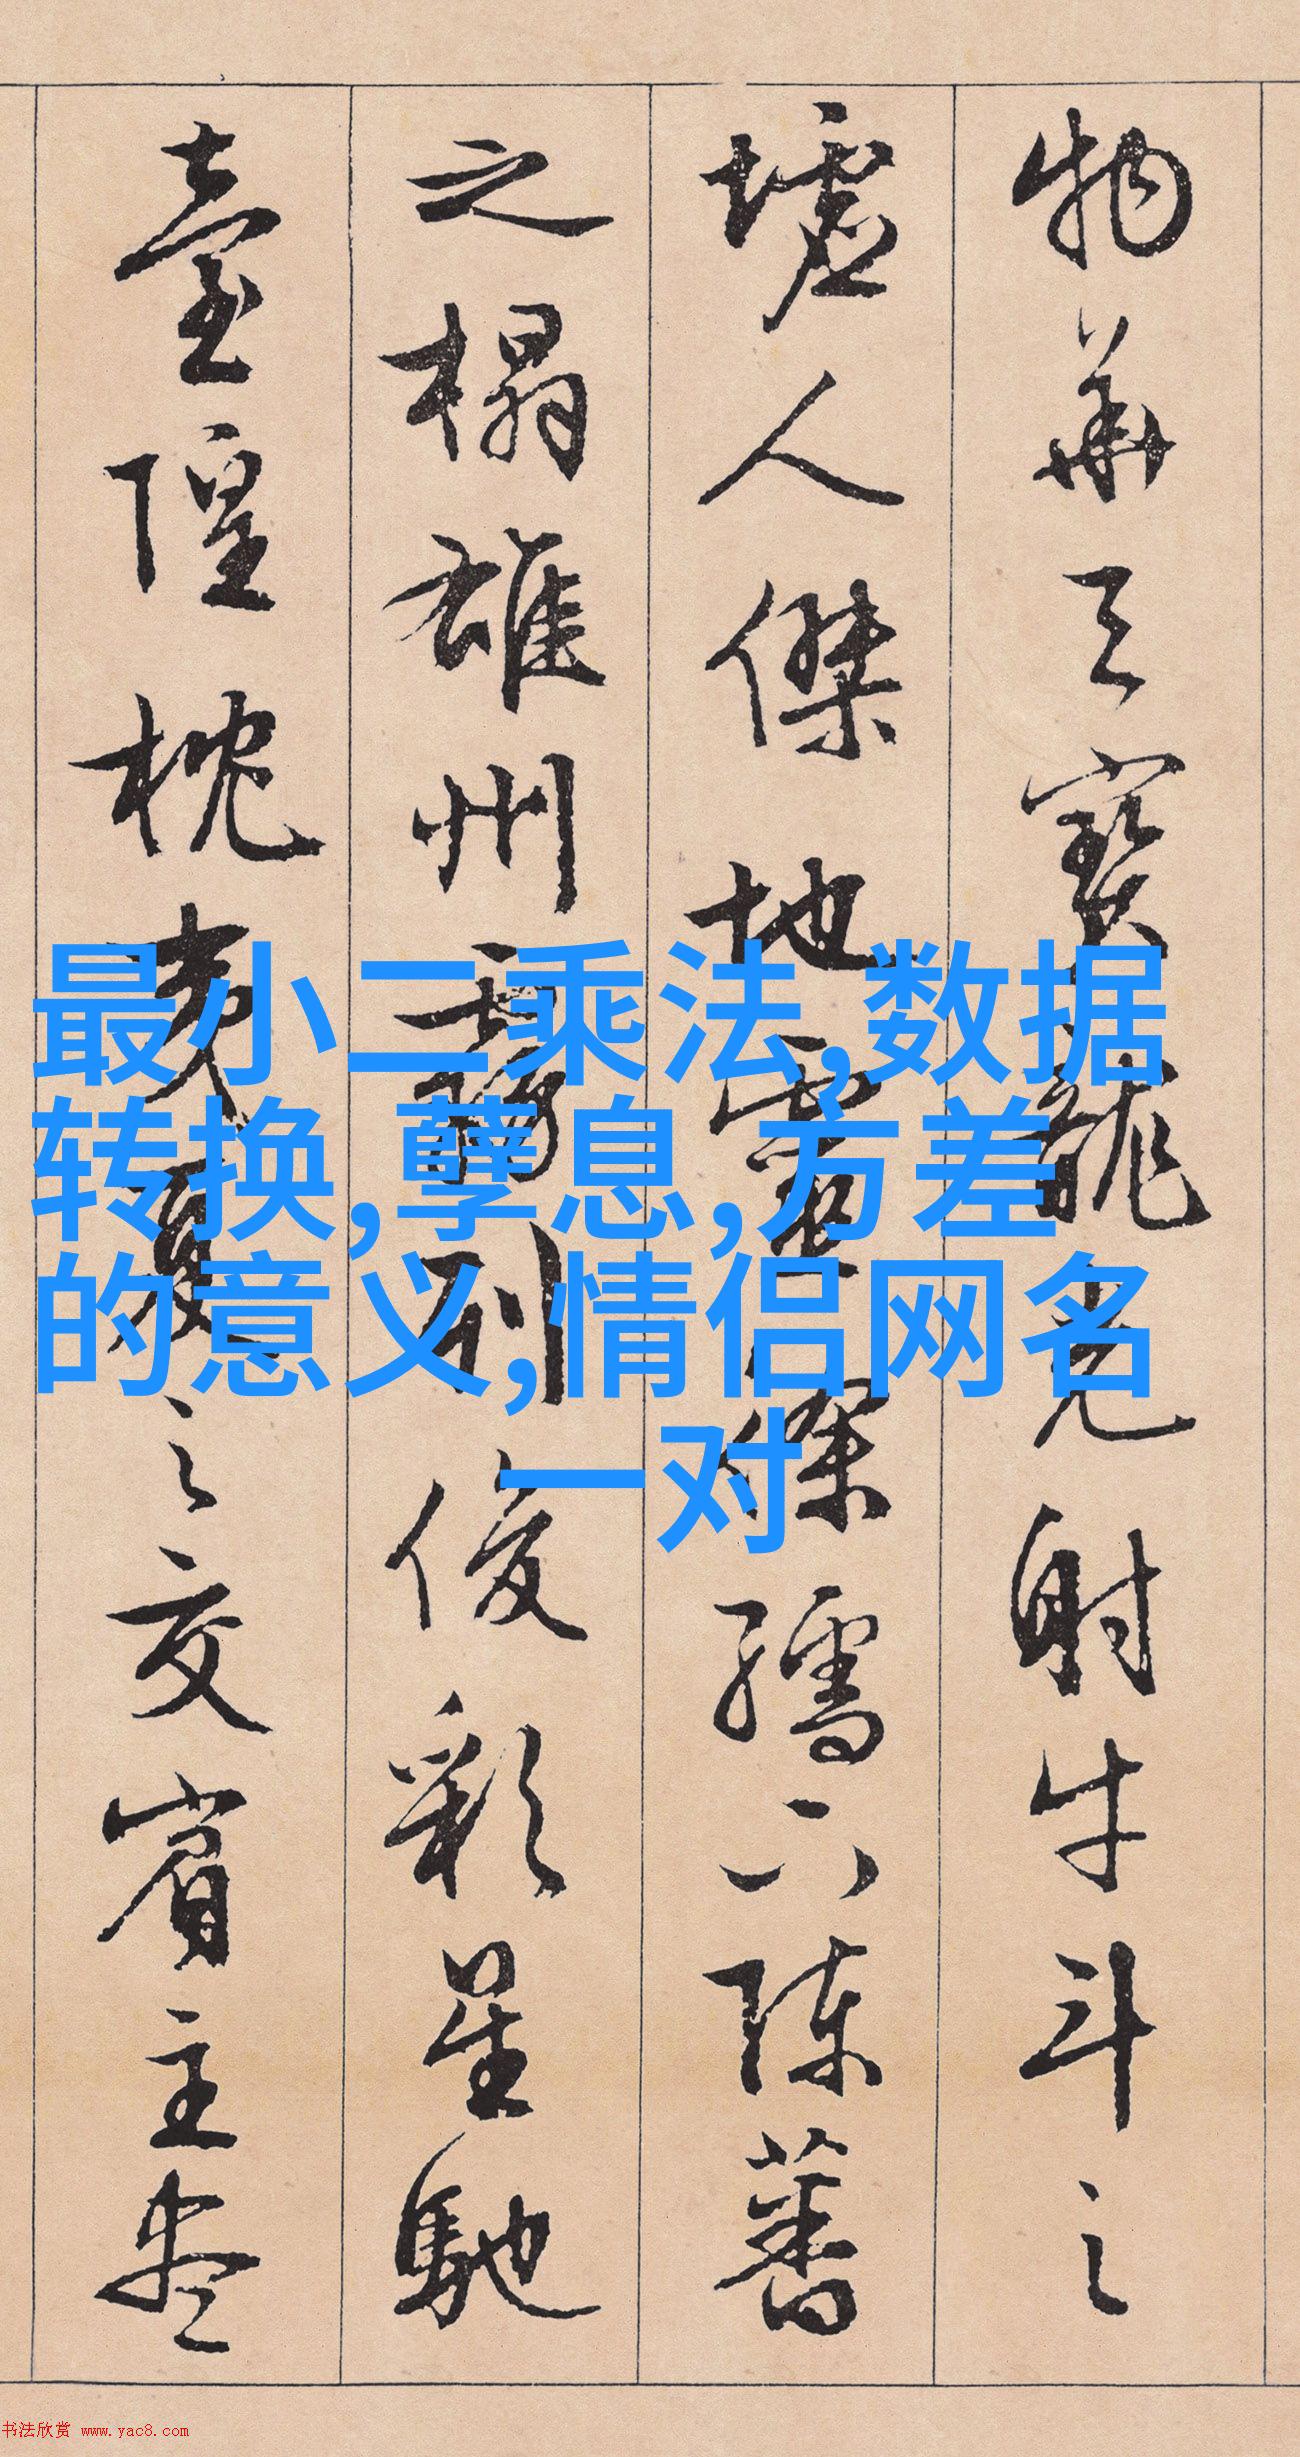 物華天寶龍光射牛斗之
墟人傑地靈徐孺下陳蕃
之榻雄州霧列俊彩星馳
臺隍枕夷夏之交賓主盡
最小二乘法,数据
转换,孽息,方差
的意义,情侣网名
一对
书法欣赏 www.yac8.com